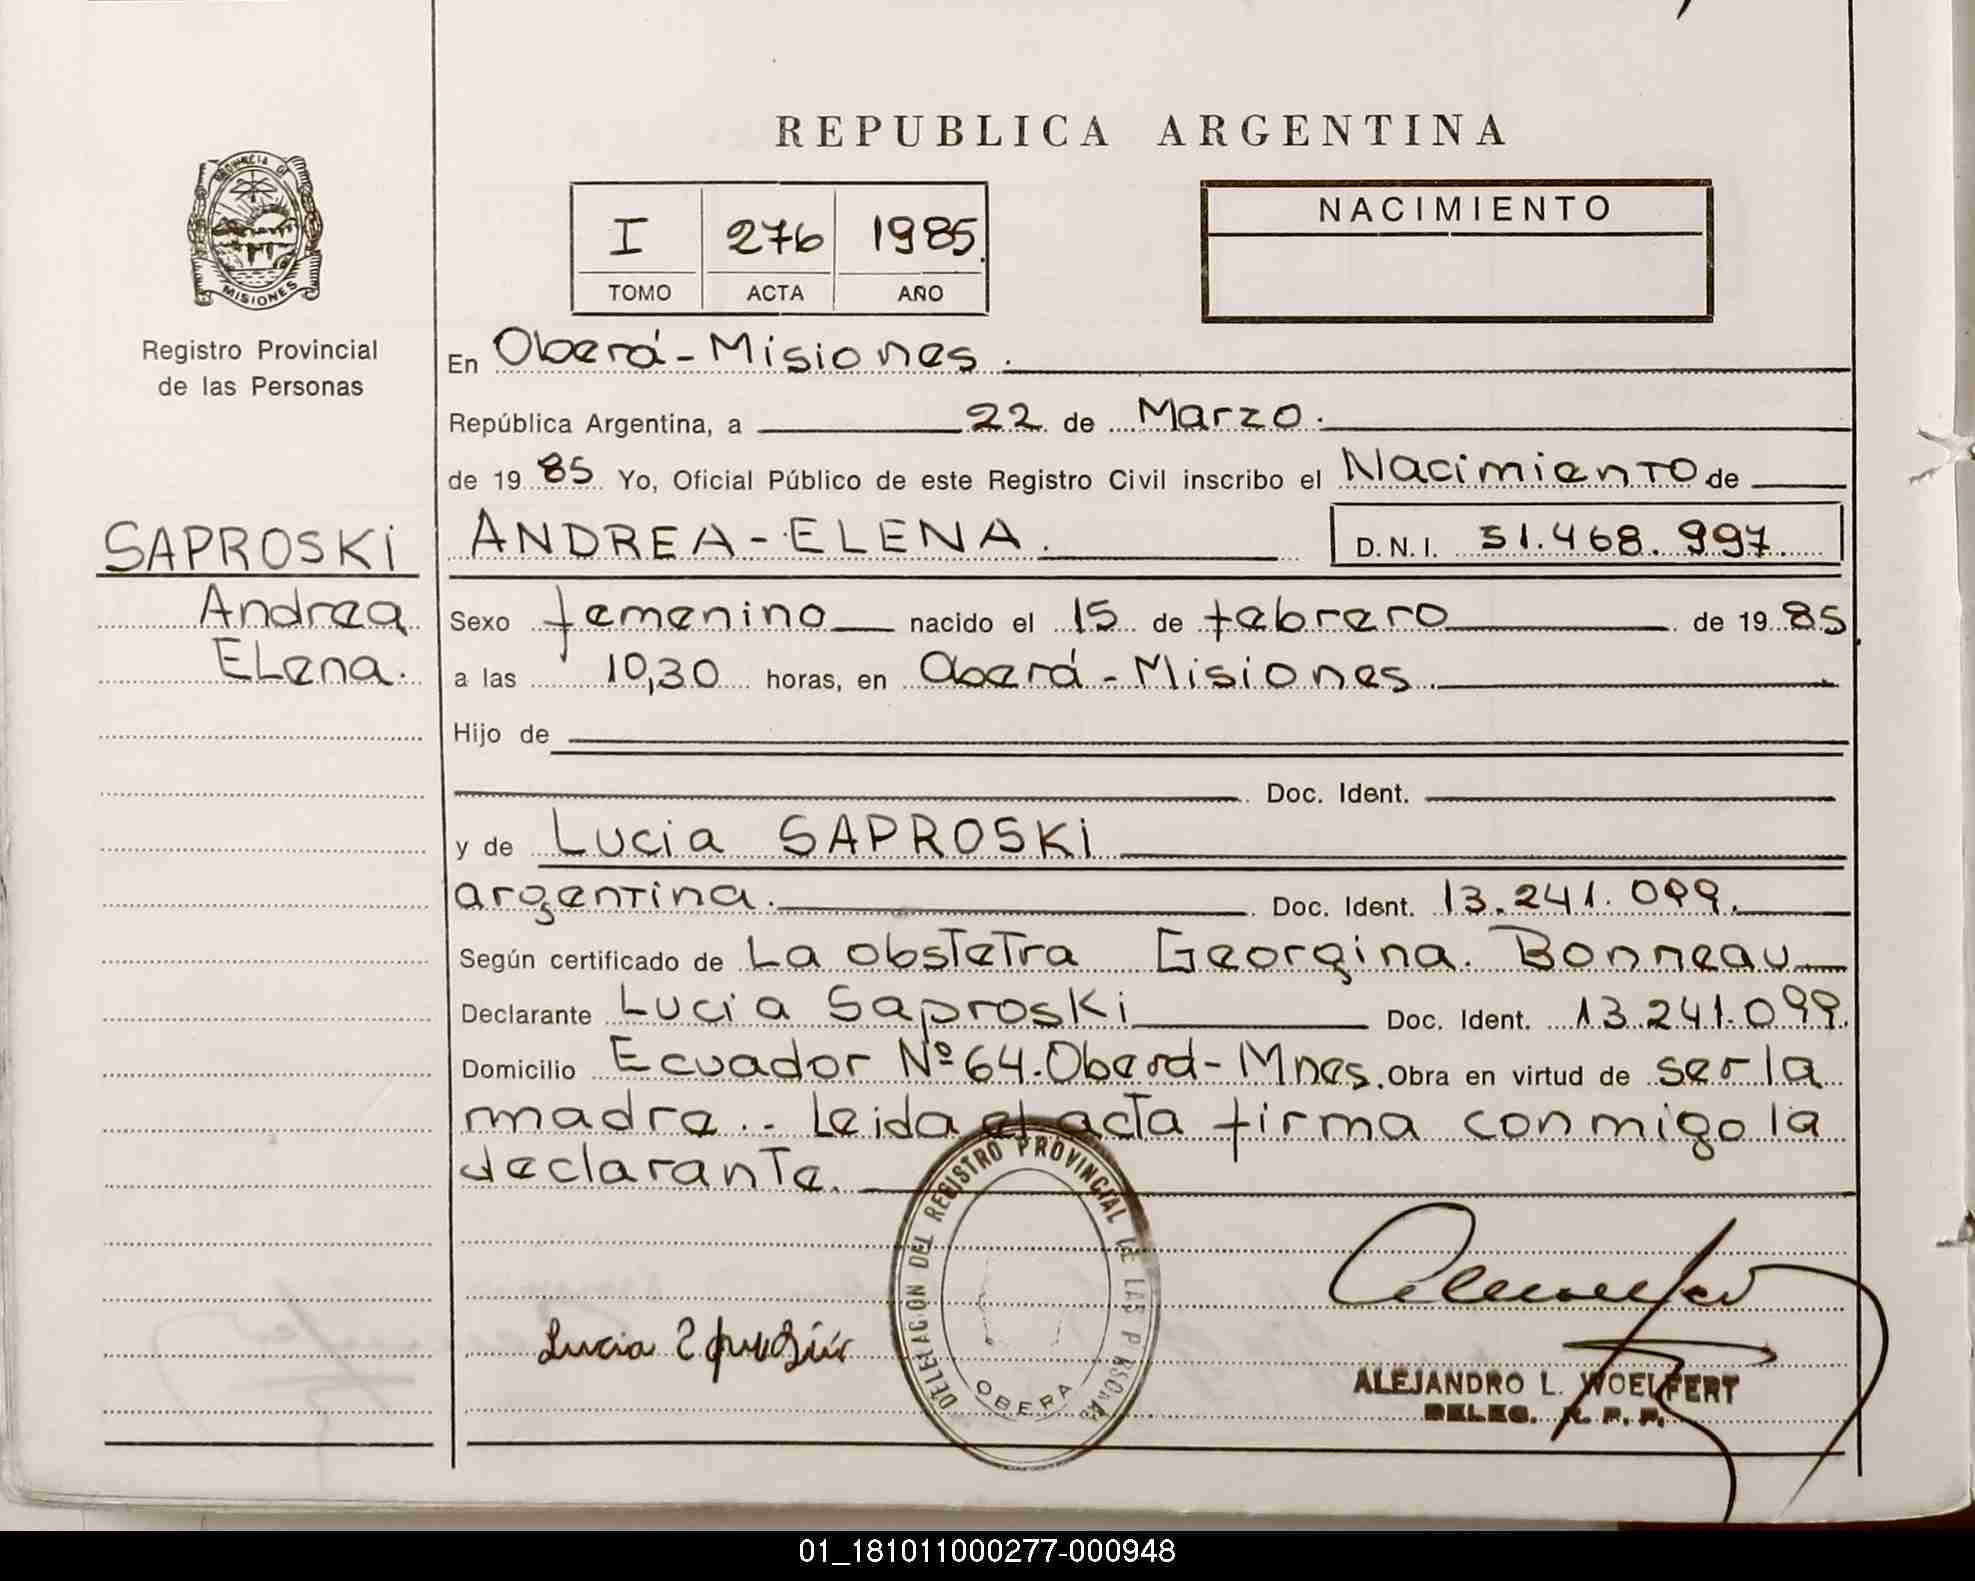 REPUBLICA ARGENTINA
PROVINCIA DE
MISIONES
Registro Provincial
de las Personas
I 276 1985
TOMO ACTA AÑO
NACIMIENTO
En Oberá - Misiones.
República Argentina, a 22 de Marzo.
de 19 85 Yo, Oficial Público de este Registro Civil inscribo el Nacimiento de
SAPROSKI
Andrea
Elena.
ANDREA - ELENA. D.N.I. 31.468.997
Sexo femenino nacido el 15 de febrero de 19 85
a las 10,30 horas, en Oberá - Misiones.
Hijo de
Doc. Ident.
y de Lucia SAPROSKI
argentina. Doc. Ident. 13.241.099.
Según certificado de La obstetra Georgina Bonneau
Declarante Lucia Saproski Doc. Ident. 13.241.099.
Domicilio Ecuador Nº 64. Oberá - Mnes. Obra en virtud de ser la
madre.. Leida el acta firma conmigo la
declarante.
DELEGACION DEL REGISTRO PROVINCIAL DE LAS PERSONAS
OBERA
Lucia
ALEJANDRO L. WOELFERT
DELEG. R. P. P.
01_181011000277-000948